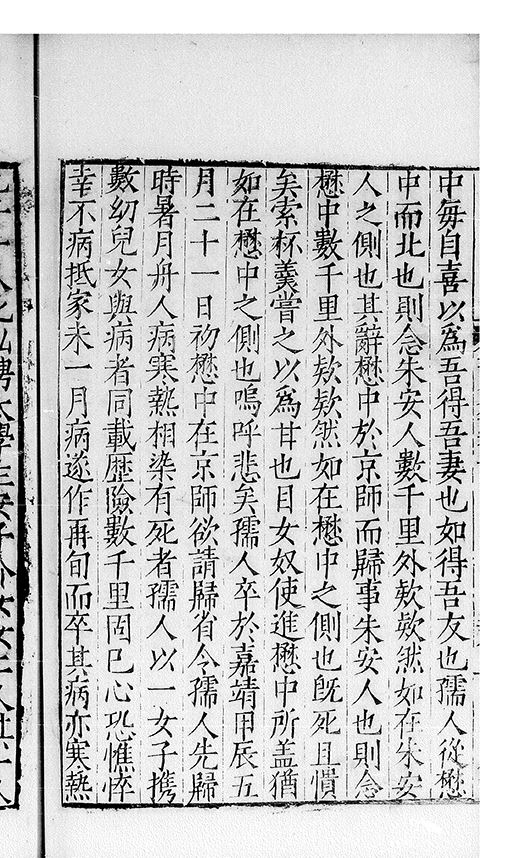 中每自喜以爲吾得吾妻也如得吾友也孺人從懋
中而北也則念朱安人數千里外欸欸然如在朱安
人之側也其辭懋中於京師而歸事朱安人也則念
懋中數千里外欸欸然如在懋中之側也既死且憒
矣索杯羹嘗之以爲甘也目女奴使進懋中所盖猶
如在懋中之側也嗚呼悲矣孺人卒於嘉靖甲辰五
月二十一日初懋中在京師欲請歸省令孺人先歸
時暑月舟人病寒熱相染有死者孺人以一女子携
數幼兒女與病者同載歷險數千里固已心恐憔悴
幸不病抵家未一月病遂作再旬而卒其病亦寒熱